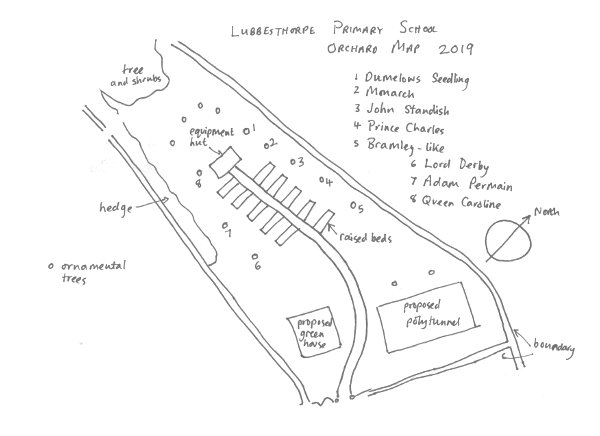 LUBBESTHORPE PRIMARY SCHOOL
ORCHARD MAP 2019
1 Dumelows Seedling
2 Monarch
3 John Standish
4 Prince Charles
5 Bramley-like
6 Lord Derby
7 Adam Permain
8 Queen Caroline
tree
and shrubs
equipment
hut
1
2
3
4
5
8
7
6
hedge
raised beds
North
ornamental
trees
proposed
green
house
proposed
polytunnel
boundary